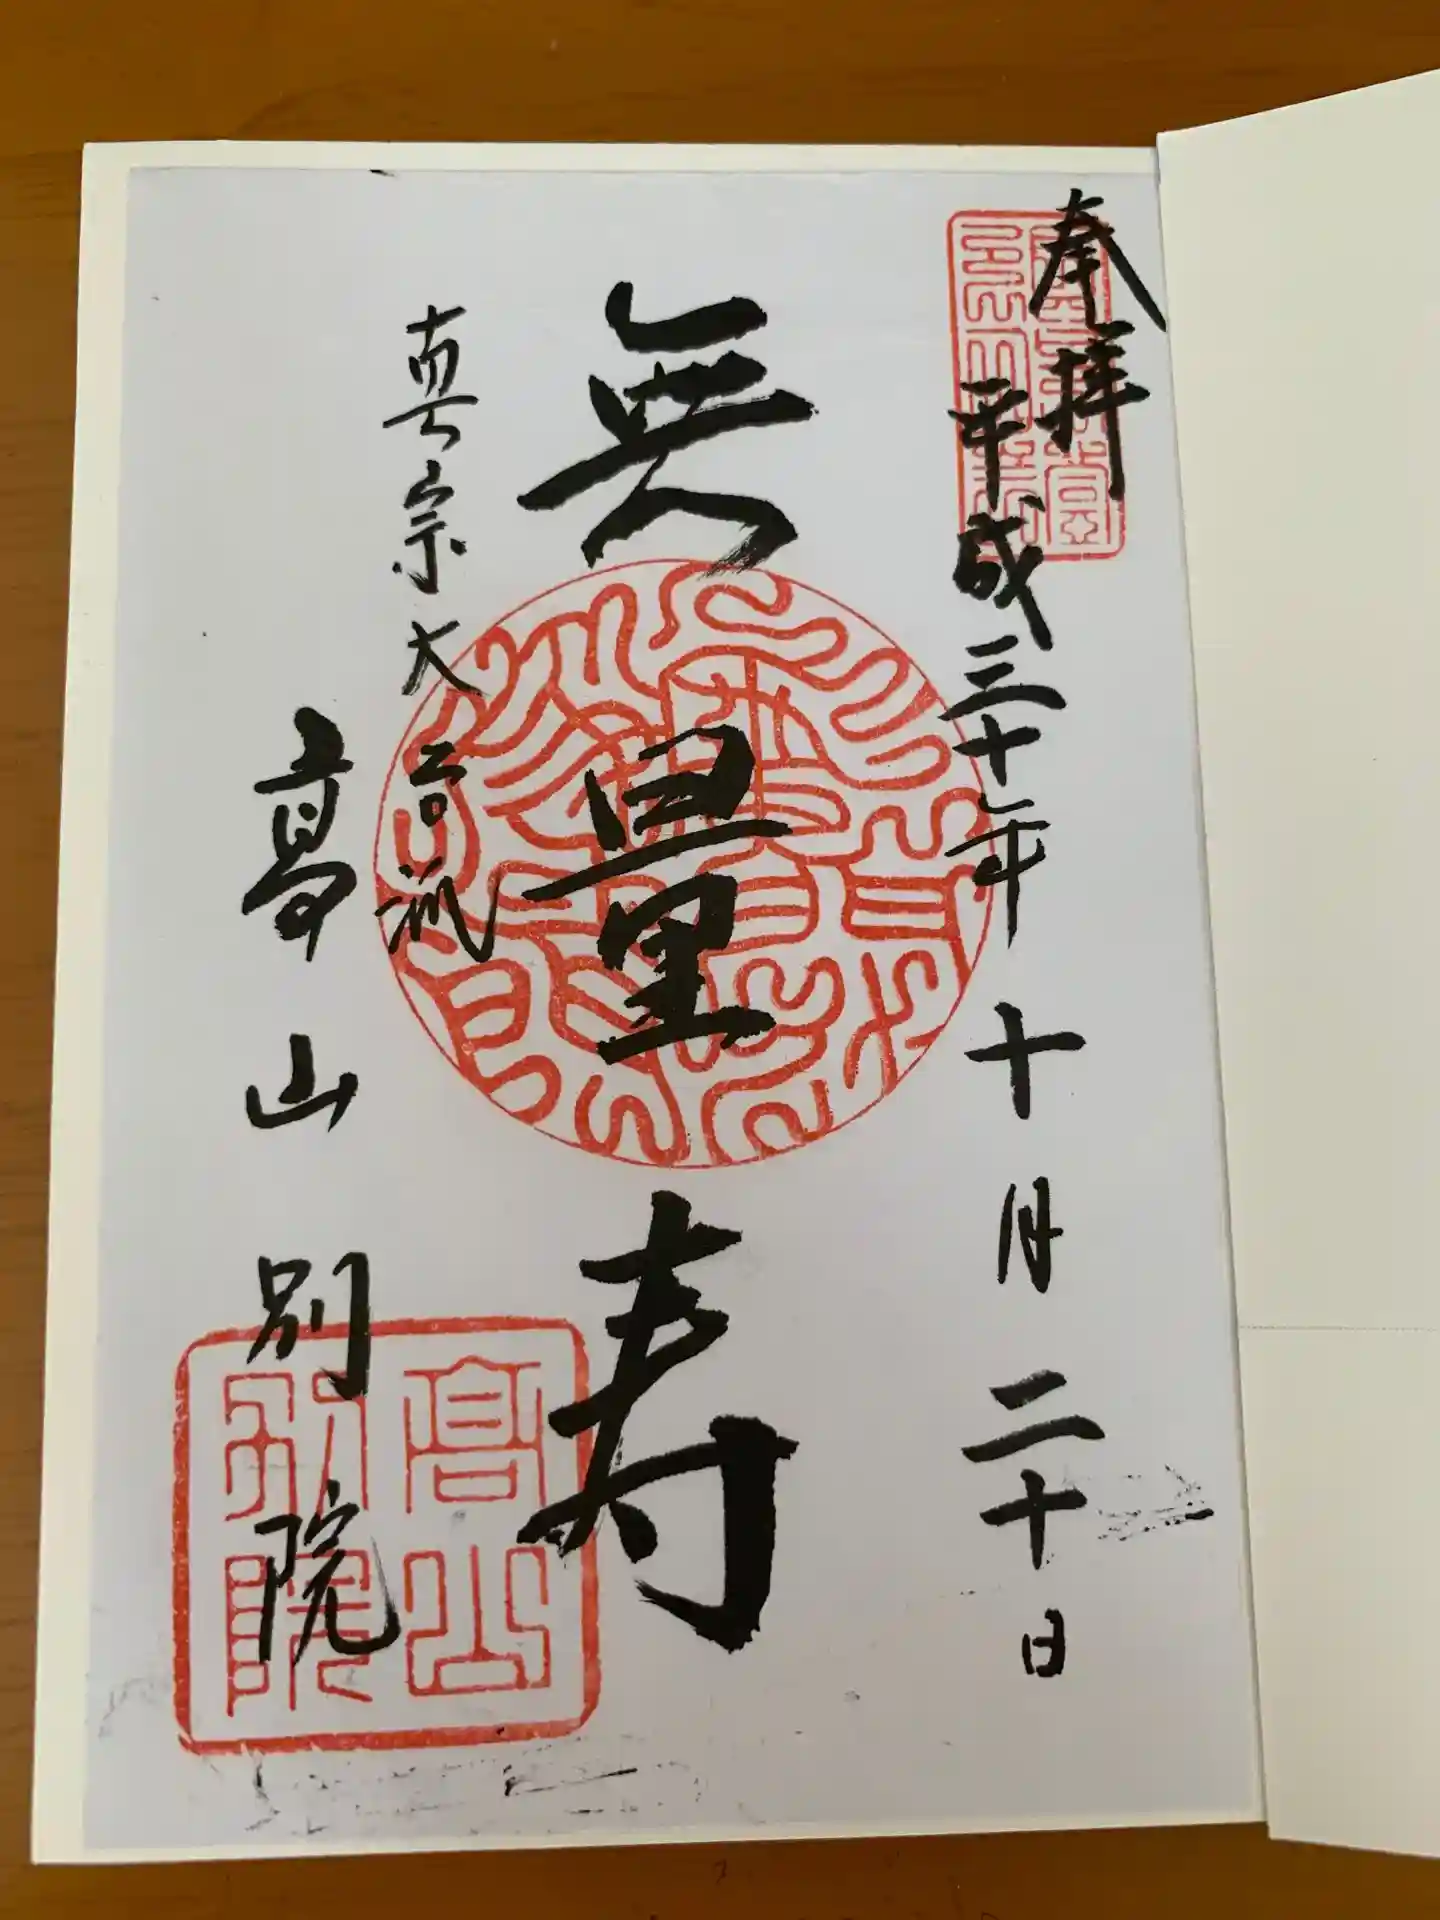 奉拝
平成三十年十月二十日
無量寿
真宗大谷派
高山別院
高山
別院